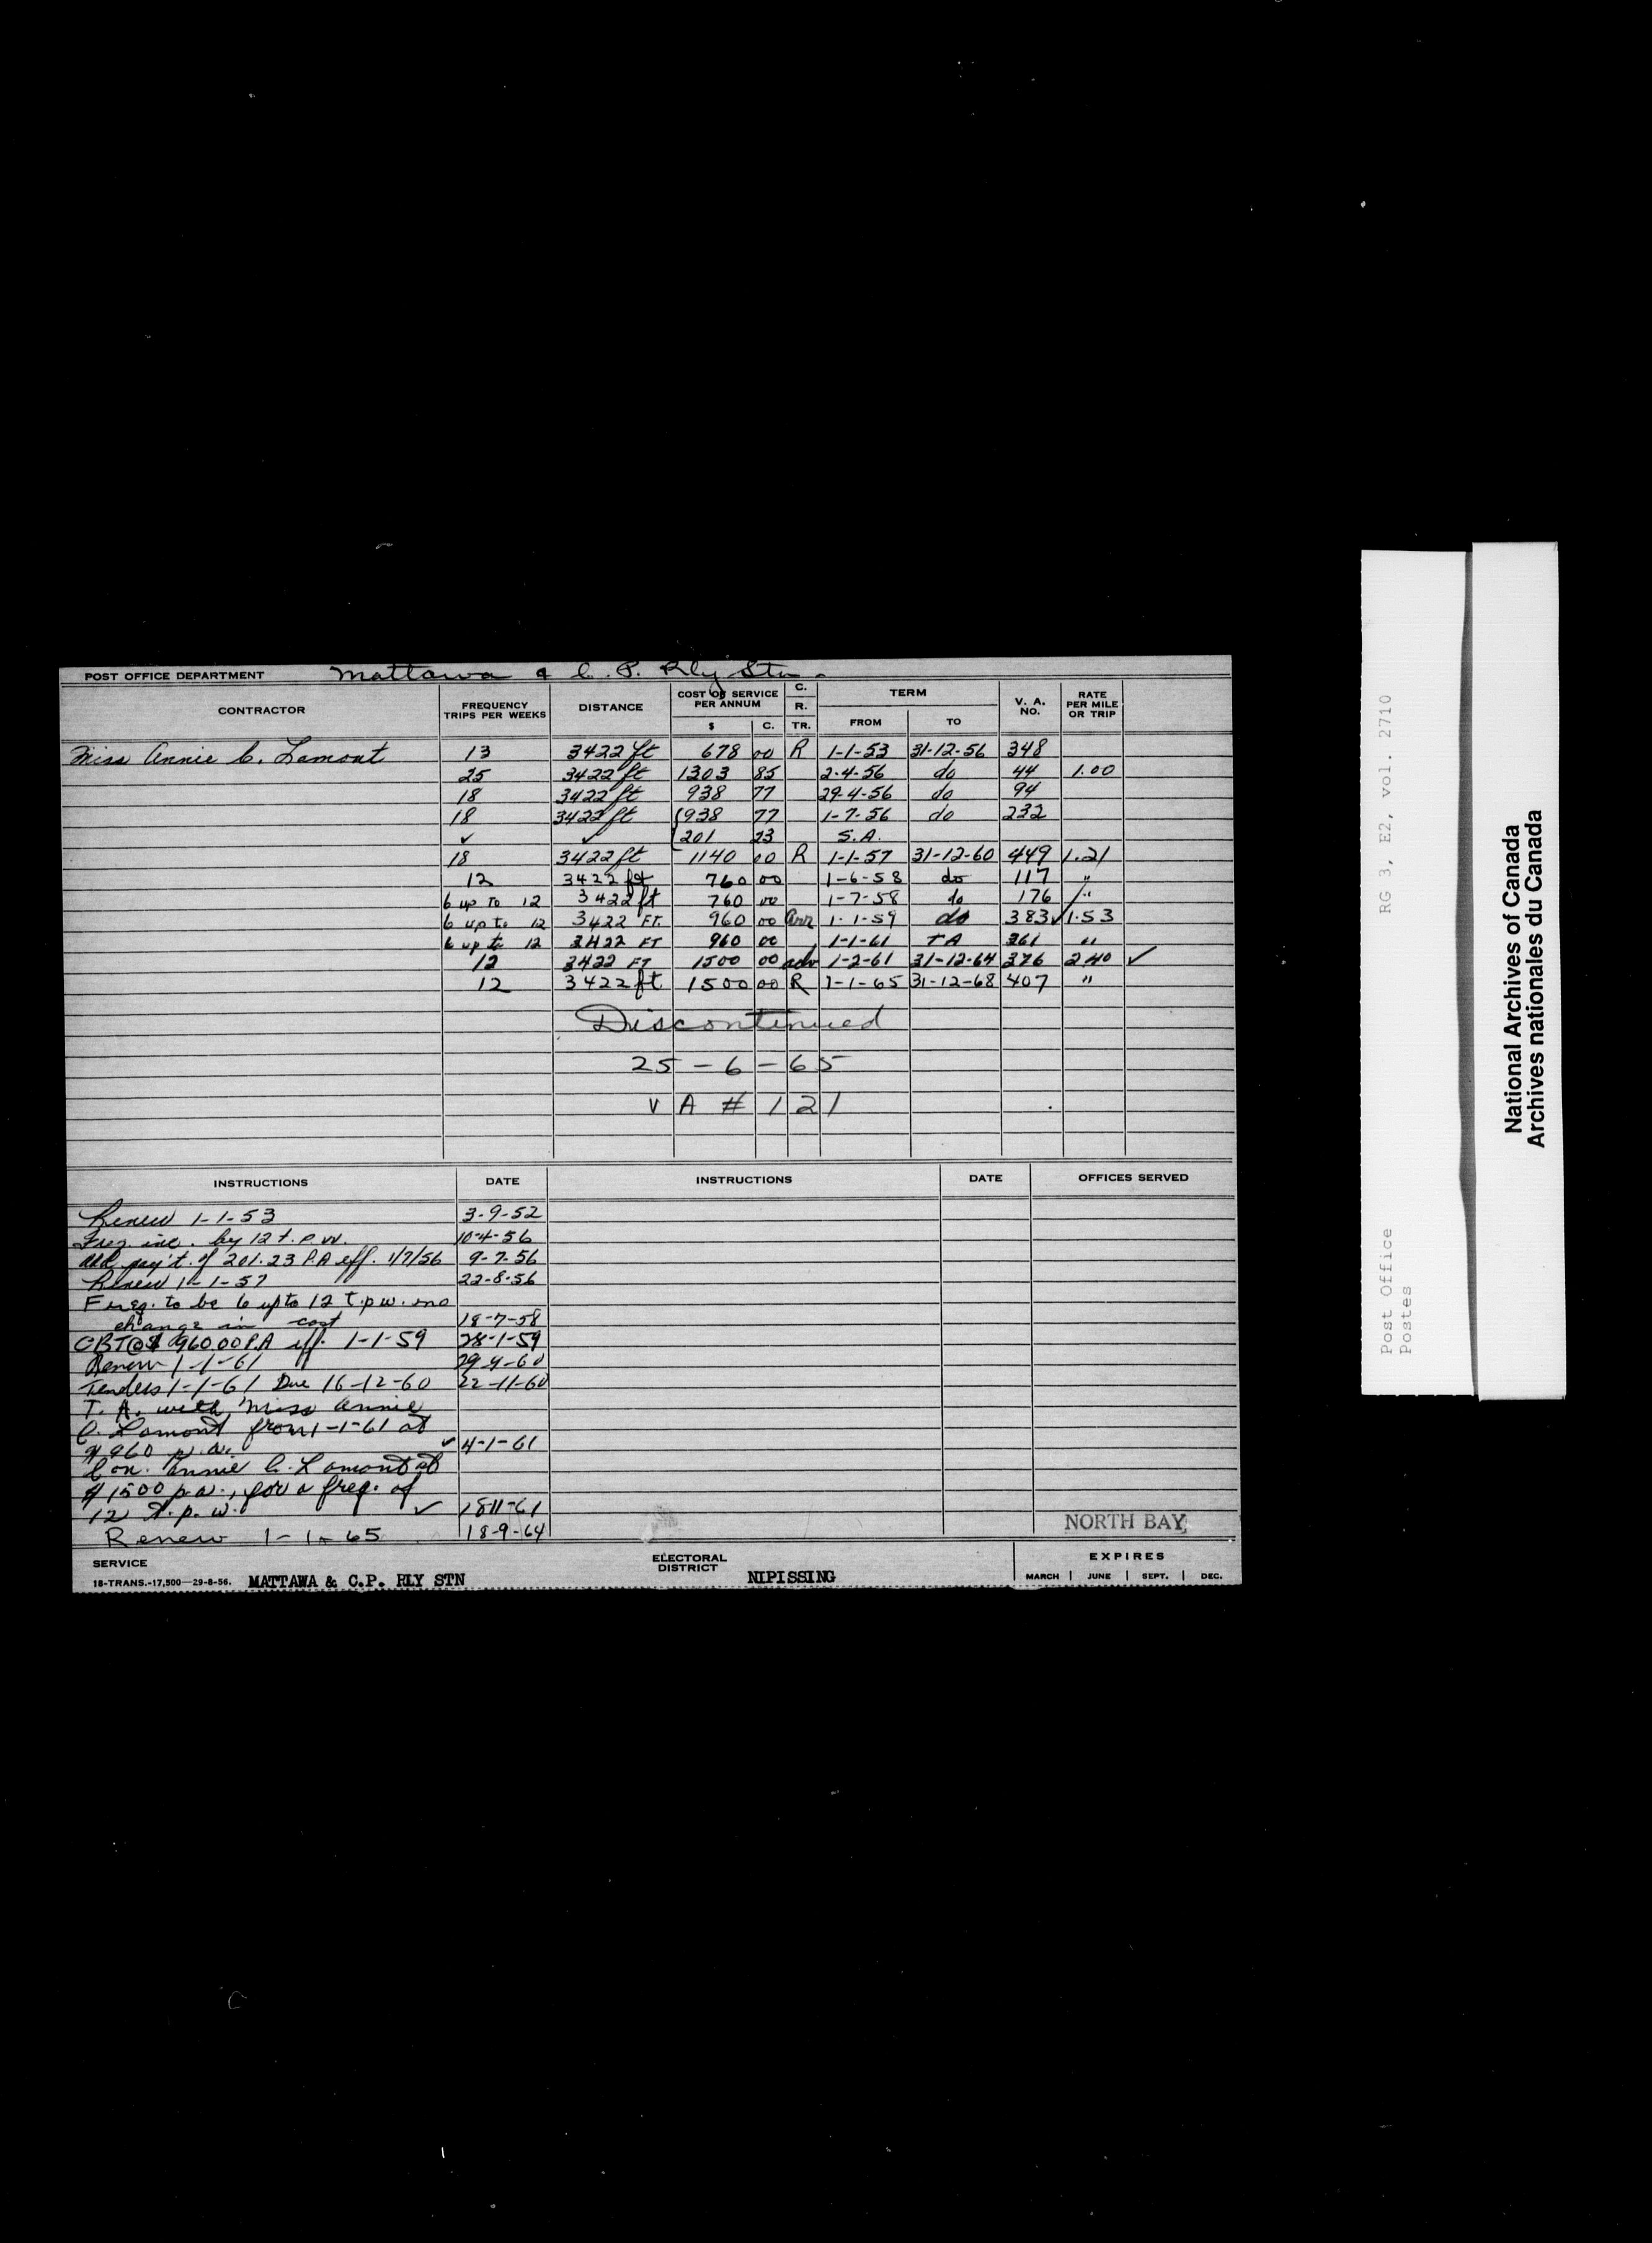 POST OFFICE DEPARTMENT Mattawa & C. P. Rly Stn.
CONTRACTOR FREQUENCY TRIPS PER WEEKS DISTANCE COST OF SERVICE PER ANNUM $ C. C. R. TR. TERM FROM TO V. A. NO. RATE PER MILE OR TRIP
Miss Annie C. Lamont 13 3422 ft 678 00 R 1-1-53 31-12-56 348
25 3422 ft 1303 85 2-4-56 do 44 1.00
18 3422 ft 938 77 29-4-56 do 94
18 3422 ft {938 77 1-7-56 do 232
✓ ✓ {201 23 S.A.
18 3422 ft 1140 00 R 1-1-57 31-12-60 449 1.21
12 3422 ft 760 00 1-6-58 do 117 "
6 up to 12 3422 ft 760 00 1-7-58 do 176 "
6 up to 12 3422 FT. 960 00 1-1-59 do 383 ✓ 1.53
6 up to 12 3422 FT 960 00 1-1-61 TA 361 "
12 3422 FT 1500 00 adv 1-2-61 31-12-64 376 2.40 ✓
12 3422 ft 1500 00 R 1-1-65 31-12-68 407 "
Discontinued
25-6-65
VA # 121
INSTRUCTIONS DATE INSTRUCTIONS DATE OFFICES SERVED
Renew 1-1-53 3-9-52
Freq. inc. by 12 t.p.w. 10-4-56
Add pay't. of 201.23 P.A eff. 1/7/56 9-7-56
Renew 1-1-57 22-8-56
Freq. to be 6 up to 12 t.p.w. no
change in cost 18-7-58
CBT@$ 960.00 P.A eff. 1-1-59 28-1-59
Renew 1-1-61
Tenders 1-1-61 Due 16-12-60 22-11-60
T. A. with Miss Annie
C. Lamont from 1-1-61 at
$960 p.a. ✓ 4-1-61
Con. Annie C. Lamont at
$1500 p.a., for a freq. of
12 t.p.w. ✓
Renew 1-1-65 18-9-64
NORTH BAY
SERVICE
18-TRANS.-17,500—29-8-56. MATTAWA & C.P. RLY STN ELECTORAL DISTRICT NIPISSING EXPIRES MARCH | JUNE | SEPT. | DEC.
RG 3, E2, vol. 2710
Post Office
Postes
National Archives of Canada
Archives nationales du Canada